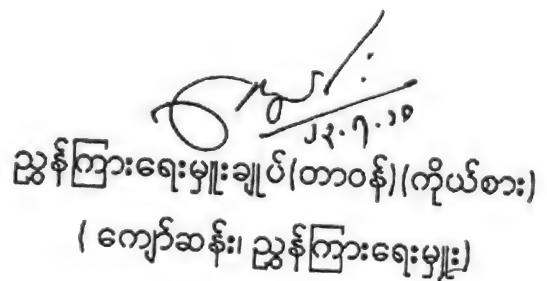 ၂၃.၇.၁၀
ညွှန်ကြားရေးမှူးချုပ်(တာဝန်)(ကိုယ်စား)
( ကျော်ဆန်း၊ ညွှန်ကြားရေးမှူး)